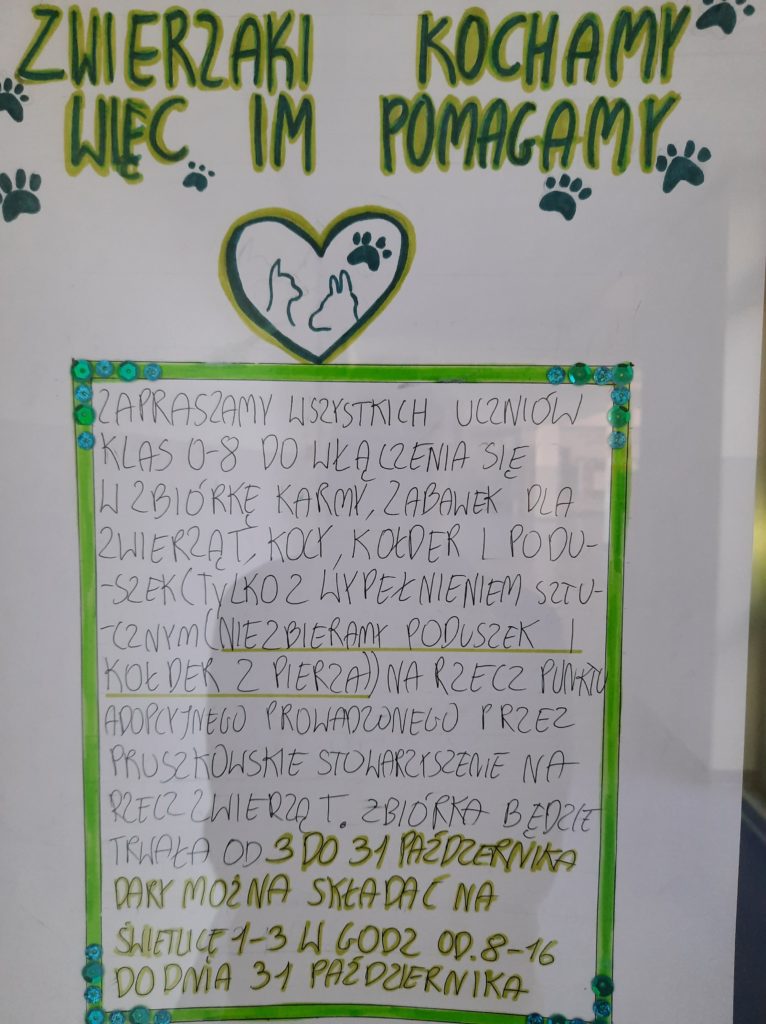 ZWIERZAKI KOCHAMY
WIĘC IM POMAGAMY
ZAPRASZAMY WSZYSTKICH UCZNIÓW
KLAS 0-8 DO WŁĄCZENIA SIĘ
W ZBIÓRKĘ KARMY, ZABAWEK DLA
ZWIERZĄT, KOCY, KOŁDER I PODU-
-SZEK (TYLKO Z WYPEŁNIENIEM SZTU-
-CZNYM (NIE ZBIERAMY PODUSZEK I
KOŁDER Z PIERZA)) NA RZECZ PUNKTU
ADOPCYJNEGO PROWADZONEGO PRZEZ
PRUSZKOWSKIE STOWARZYSZENIE NA
RZECZ ZWIERZĄT. ZBIÓRKA BĘDZIE
TRWAŁA OD 3 DO 31 PAŹDZIERNIKA
DARY MOŻNA SKŁADAĆ NA
ŚWIETLICĘ 1-3 W GODZ OD. 8-16
DO DNIA 31 PAŹDZIERNIKA